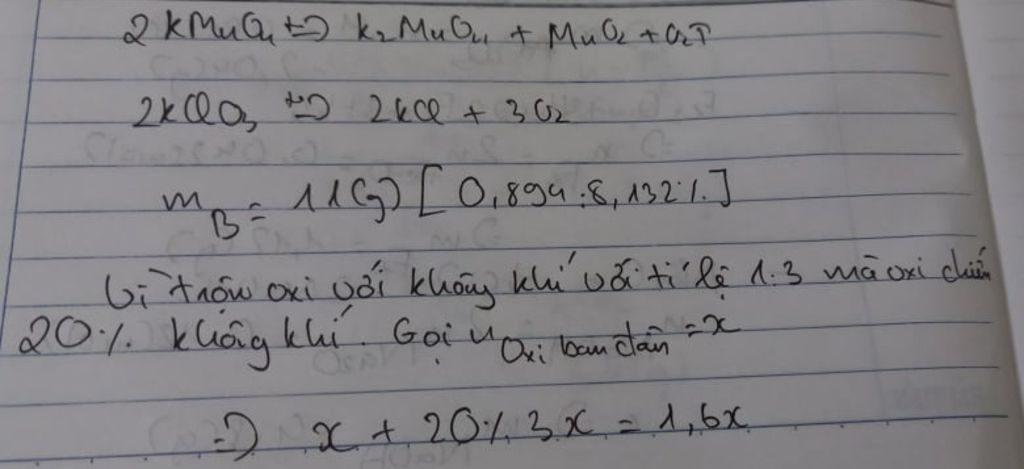 2KMnO₄ t°⇒ K₂MnO₄ + MnO₂ + O₂↑
2KClO₃ t°⇒ 2KCl + 3O₂
m_B = 11(g) [0,894:8,132%]
Vì trộn oxi với không khí với tỉ lệ 1:3 mà oxi chiếm
20% không khí. Gọi n_Oxi ban đầu = x
⇒ x + 20%.3x = 1,6x